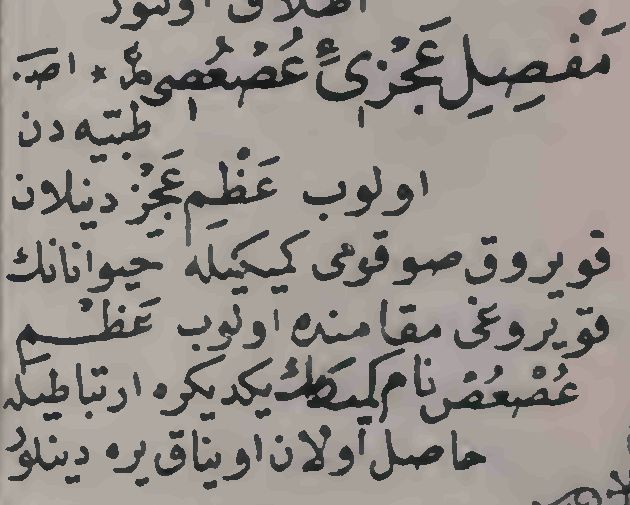 اطلاق اولنور
مَفْصِلِ عَجُزِیِّ عُصْعُصِی مذ * ا صد.
طبیه دن
اولوب عَظْمِ عَجُزْ دینلان
قویروق صوقومی کمیکیله حیواناتك
قویروغی مقامنده اولوب عَظْمِ
عُصْعُصْ نام کمیکك یکدیکره ارتباطیله
حاصل اولان اویناق یره دینلور